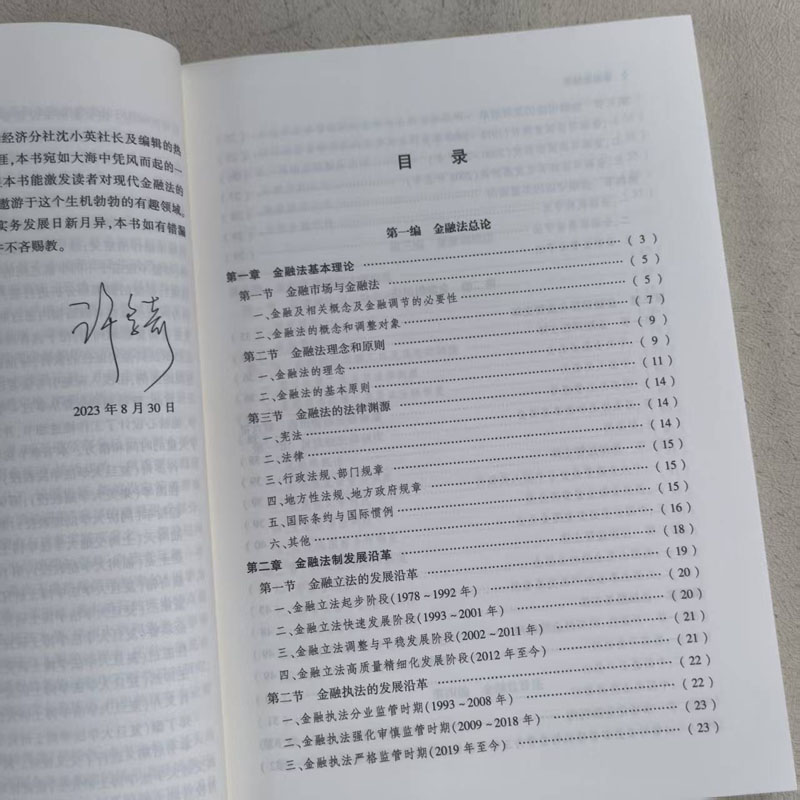 经济分社沈小英社长及编辑的热
涯,本书宛如大海中凭风而起的一
本书能激发读者对现代金融法的
遨游于这个生机勃勃的有趣领域。
实务发展日新月异,本书如有错漏
不吝赐教。
许多奇
2023年8月30日
目 录
第一编 金融法总论
第一章 金融法基本理论 …… (3)
第一节 金融市场与金融法 …… (5)
一、金融及相关概念及金融调节的必要性 …… (5)
二、金融法的概念和调整对象 …… (7)
第二节 金融法理念和原则 …… (9)
一、金融法的理念 …… (9)
二、金融法的基本原则 …… (11)
第三节 金融法的法律渊源 …… (14)
一、宪法 …… (14)
二、法律 …… (14)
三、行政法规、部门规章 …… (15)
四、地方性法规、地方政府规章 …… (15)
五、国际条约与国际惯例 …… (15)
六、其他 …… (16)
第二章 金融法制发展沿革 …… (18)
第一节 金融立法的发展沿革 …… (19)
一、金融立法起步阶段(1978~1992年) …… (20)
二、金融立法快速发展阶段(1993~2001年) …… (20)
三、金融立法调整与平稳发展阶段(2002~2011年) …… (21)
四、金融立法高质量精细化发展阶段(2012年至今) …… (21)
第二节 金融执法的发展沿革 …… (22)
一、金融执法分业监管时期(1993~2008年) …… (22)
二、金融执法强化审慎监管时期(2009~2018年) …… (23)
三、金融执法严格监管时期(2019年至今) …… (23)